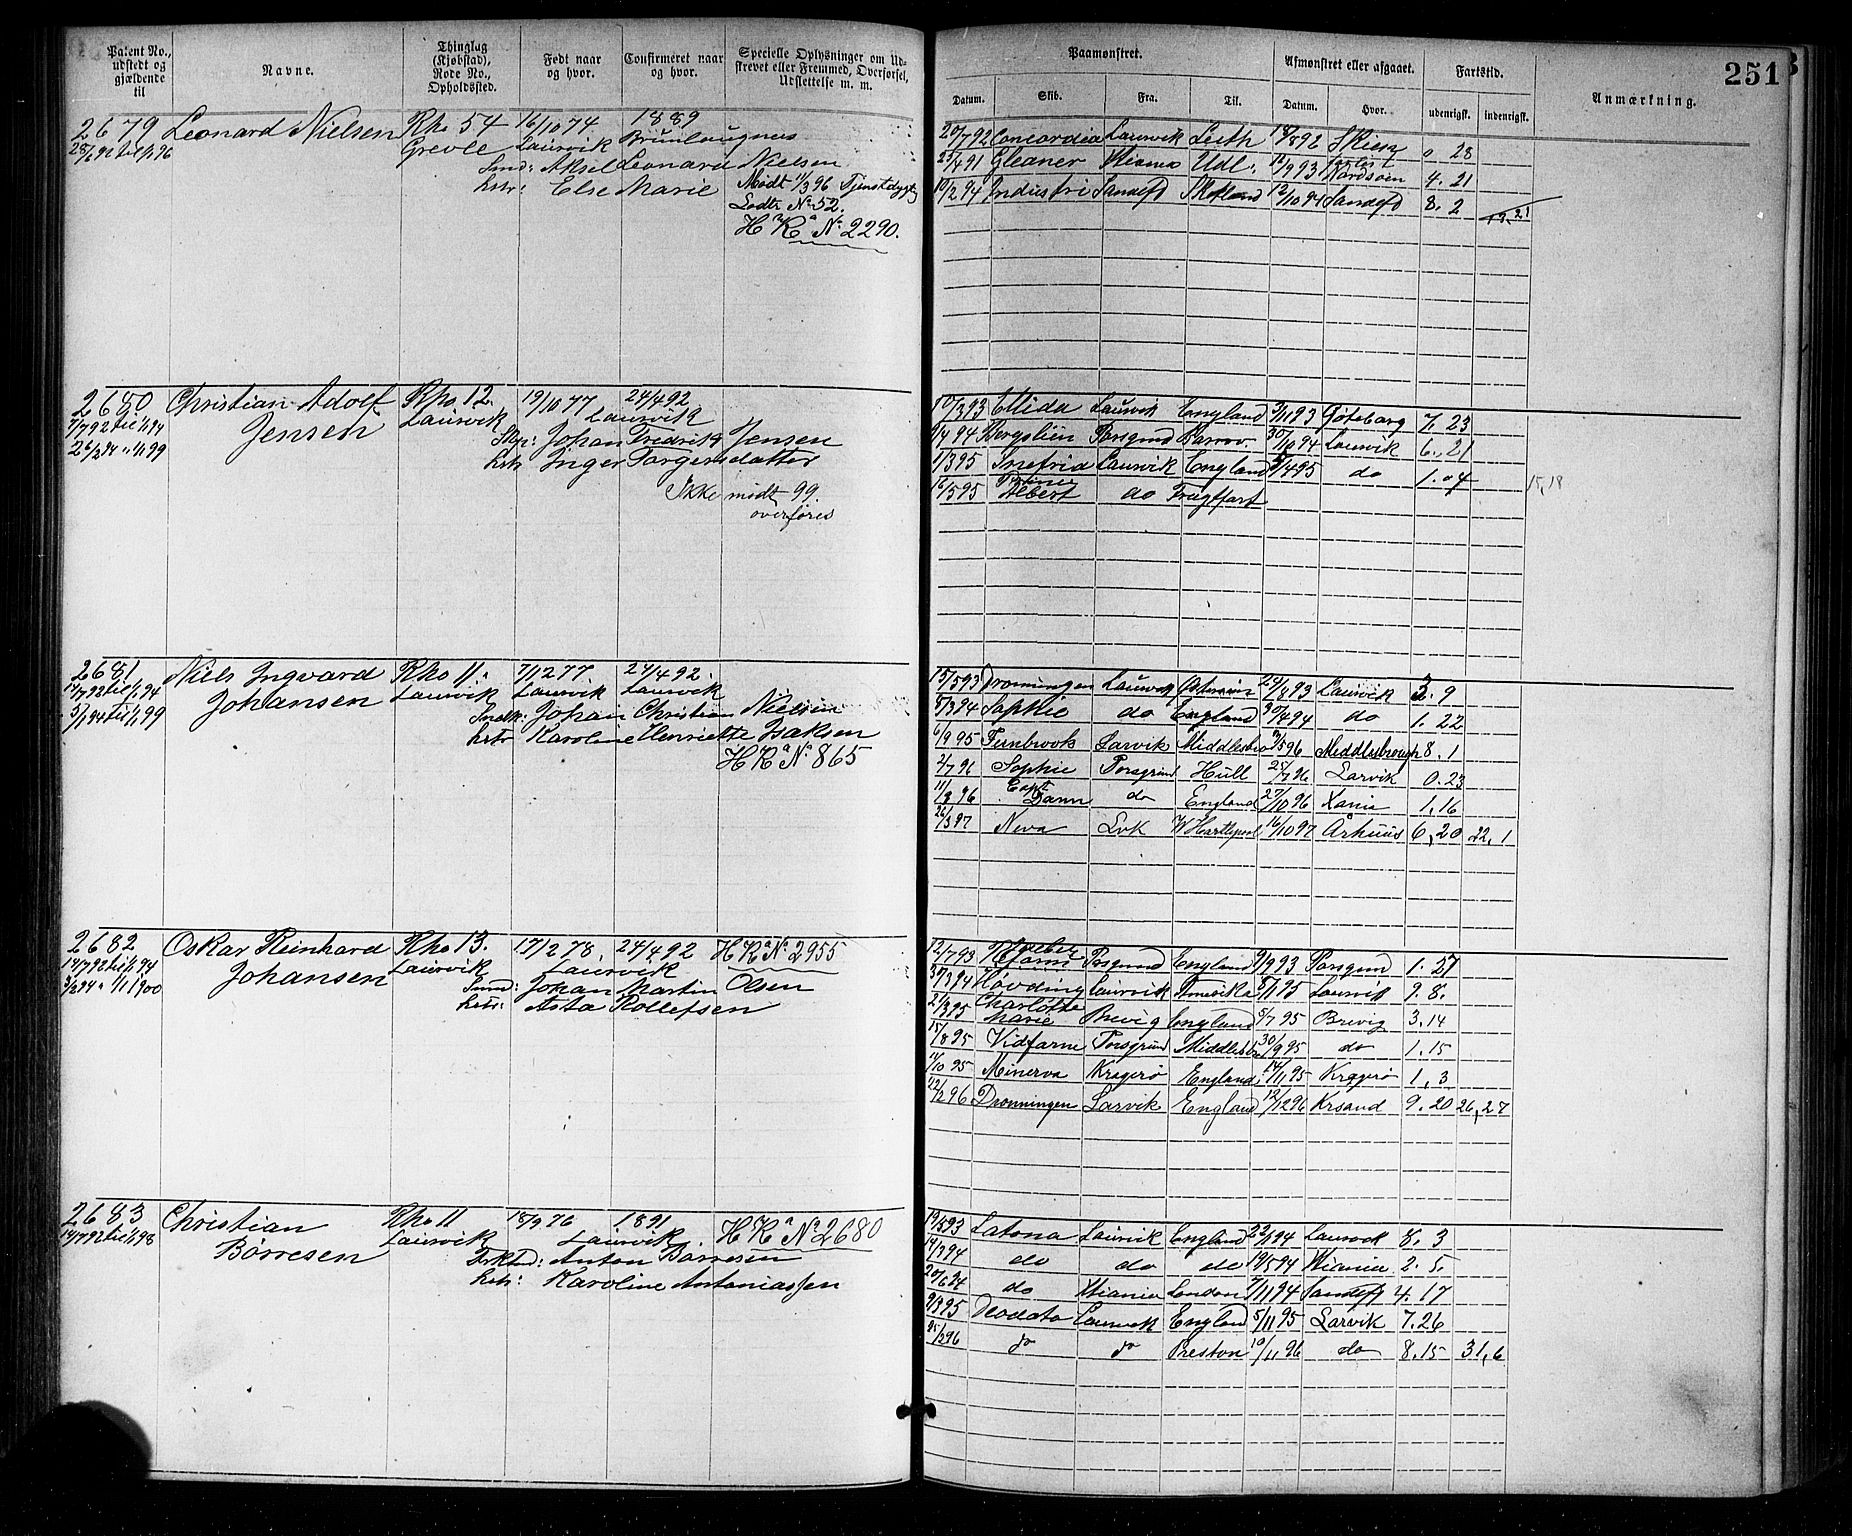 251
Patent No., udstedt og gjældende til
Navne.
Thinglag (Kjøbstad), Rode No., Opholdssted.
Født naar og hvor.
Confirmeret naar og hvor.
Specielle Oplysninger om Udskrevet eller Fremmed, Overførsel, Udslettelse m. m.
Paamønstret.
Afmønstret eller afgaaet.
Fartstid.
Anmærkning.
Datum. Skib. Fra. Til. Datum. Hvor. udenrigsk. indenrigsk.
2679 Leonard Nielsen Rho 54 16/10 74 1889
28/6 92 til 1/1 96 Grevle Laurvik Brunlaugnes
Smd: Aksel Leonard Nielsen
Estr: Else Marie Mødt 11/3 96 Tjenstdygtig
Lodtr No 52.
H Ra No 2290.
20/7 92 Concordia Laurvik Leith 18/8 92 Skien 0 28
Gleaner Kiania Udl. 4. 21
10/2 94 Industri Sandefd 12/10 94 Sandefd 8. 2
2680 Christian Adolf Rho 12. 19/10 77 24/4 92
7/7 92 til 1/1 94 Jensen Laurvik Laurvik
26/2 94 " 1/1 99 Johan Fredrik Jensen
Estr Inger Torgersdatter
Ikke mødt 99.
overføres
10/3 93 Ellida Laurvik England 9/11 93 Gøteborg 7. 23
9/4 94 Bergslien Porsgrund Barrov 30/10 94 Laurvik 6. 21
1/3 95 Laurvik England do 1. 04
16/5 95 Albert do Fragtfart
15,18
2681 Niels Ingvard Rho 11. 7/12 77 24/4 92.
14/7 92 til 1/1 94 Johansen Laurvik Laurvik Laurvik
5/1 94 til 1/1 99 Smdk: Johan Christian Nielsen
Estr Karoline Henriette Isaksen
H Ra No 865
15/5 93 Dronningen Laurvik 24/8 93 Laurvik 3. 9
8/3 94 Sophie do England 30/4 94 do 1. 22
6/9 95 Larvik Middlesbro 7/5 96 Middlesbrough 8. 1
2/7 96 Sophie Porsgrund Hull 25/7 96 Larvik 0. 23
Capt Dann do England 27/10 96 Xania 1, 16
26/3 97 Neva Lvk W Hartlepool 16/10 97 Århuus 6, 20 22, 1
2682 Oskar Reinhard Rho 13. 17/12 78, 24/4 92 H Ra No 2955
14/7 92 til 1/1 94 Johansen Laurvik Laurvik
3/2 94 " 1/1 1900 Smd: Johan Martin Olsen
Estr: Asta Rollefsen
12/7 93 Porsgrund England 9/9 93 Porsgrun 1. 27
Høvding Laurvik Amerika Laurvik 9. 8.
21/3 95 Charlotte Marie Brevig England 5/7 95 Brevig 3. 14
15/8 95 Vidfarne Porsgrund Middlesbro 30/9 95 do 1. 15
11/10 95 Minerva Kragerø England 14/11 95 Kragerø 1, 3
12/2 96 Dronningen Larvik England 12/12 96 Krsand 9. 20 26, 27
2683 Christian Rho 11 18/9 76 1891 H Ra No 2680
14/7 92 til 1/1 98 Børresen Laurvik Laurvik
Anton Børresen
Estr: Karoline Antoniassen
19/5 93 Latona Laurvik England 22/1 94 Laurvik 8. 3
14/3 94 do do do 19/5 94 Kiania 2. 5.
20/6 94 do Kiania London 7/11 94 Sandefj 4. 17
9/3 95 Deodata Laurvik England 5/11 95 Larvik 7. 26
25/2 96 do do Preston 10/11 96 do 8. 15 31, 6